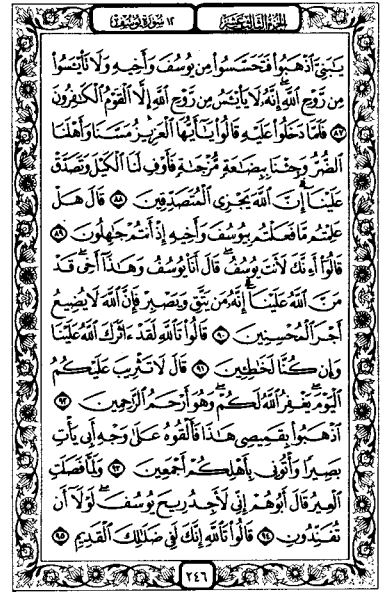 الجزء الثالث عشر ١٢ سورة يوسف
يَٰبَنِىَّ ٱذْهَبُوا۟ فَتَحَسَّسُوا۟ مِن يُوسُفَ وَأَخِيهِ وَلَا تَا۟يْـَٔسُوا۟
مِن رَّوْحِ ٱللَّهِ ۖ إِنَّهُۥ لَا يَا۟يْـَٔسُ مِن رَّوْحِ ٱللَّهِ إِلَّا ٱلْقَوْمُ ٱلْكَٰفِرُونَ
٨٧ فَلَمَّا دَخَلُوا۟ عَلَيْهِ قَالُوا۟ يَٰٓأَيُّهَا ٱلْعَزِيزُ مَسَّنَا وَأَهْلَنَا
ٱلضُّرُّ وَجِئْنَا بِبِضَٰعَةٍ مُّزْجَىٰةٍ فَأَوْفِ لَنَا ٱلْكَيْلَ وَتَصَدَّقْ
عَلَيْنَآ ۖ إِنَّ ٱللَّهَ يَجْزِى ٱلْمُتَصَدِّقِينَ ٨٨ قَالَ هَلْ
عَلِمْتُم مَّا فَعَلْتُم بِيُوسُفَ وَأَخِيهِ إِذْ أَنتُمْ جَٰهِلُونَ ٨٩
قَالُوٓا۟ أَءِنَّكَ لَأَنتَ يُوسُفُ ۖ قَالَ أَنَا۠ يُوسُفُ وَهَٰذَآ أَخِى ۖ قَدْ
مَنَّ ٱللَّهُ عَلَيْنَآ ۖ إِنَّهُۥ مَن يَتَّقِ وَيَصْبِرْ فَإِنَّ ٱللَّهَ لَا يُضِيعُ
أَجْرَ ٱلْمُحْسِنِينَ ٩٠ قَالُوا۟ تَٱللَّهِ لَقَدْ ءَاثَرَكَ ٱللَّهُ عَلَيْنَا
وَإِن كُنَّا لَخَٰطِـِٔينَ ٩١ قَالَ لَا تَثْرِيبَ عَلَيْكُمُ
ٱلْيَوْمَ ۖ يَغْفِرُ ٱللَّهُ لَكُمْ ۖ وَهُوَ أَرْحَمُ ٱلرَّٰحِمِينَ ٩٢
ٱذْهَبُوا۟ بِقَمِيصِى هَٰذَا فَأَلْقُوهُ عَلَىٰ وَجْهِ أَبِى يَأْتِ
بَصِيرًا وَأْتُونِى بِأَهْلِكُمْ أَجْمَعِينَ ٩٣ وَلَمَّا فَصَلَتِ
ٱلْعِيرُ قَالَ أَبُوهُمْ إِنِّى لَأَجِدُ رِيحَ يُوسُفَ ۖ لَوْلَآ أَن
تُفَنِّدُونِ ٩٤ قَالُوا۟ تَٱللَّهِ إِنَّكَ لَفِى ضَلَٰلِكَ ٱلْقَدِيمِ ٩٥
٢٤٦